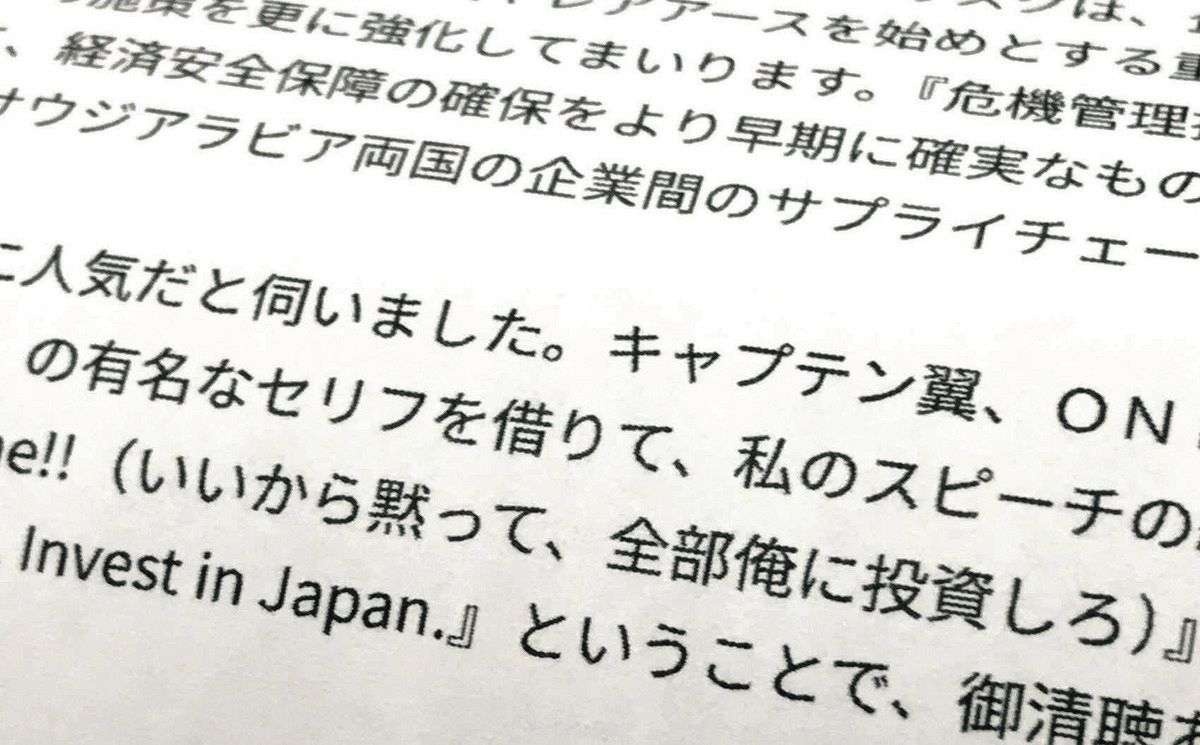 施策を更に強化してまいります。『危機管理
レアアースを始めとする重
、経済安全保障の確保をより早期に確実なもの
サウジアラビア両国の企業間のサプライチェー
に人気だと伺いました。キャプテン翼、ＯＮ
の有名なセリフを借りて、私のスピーチの
e!!（いいから黙って、全部俺に投資しろ）』
Invest in Japan.』ということで、御清聴